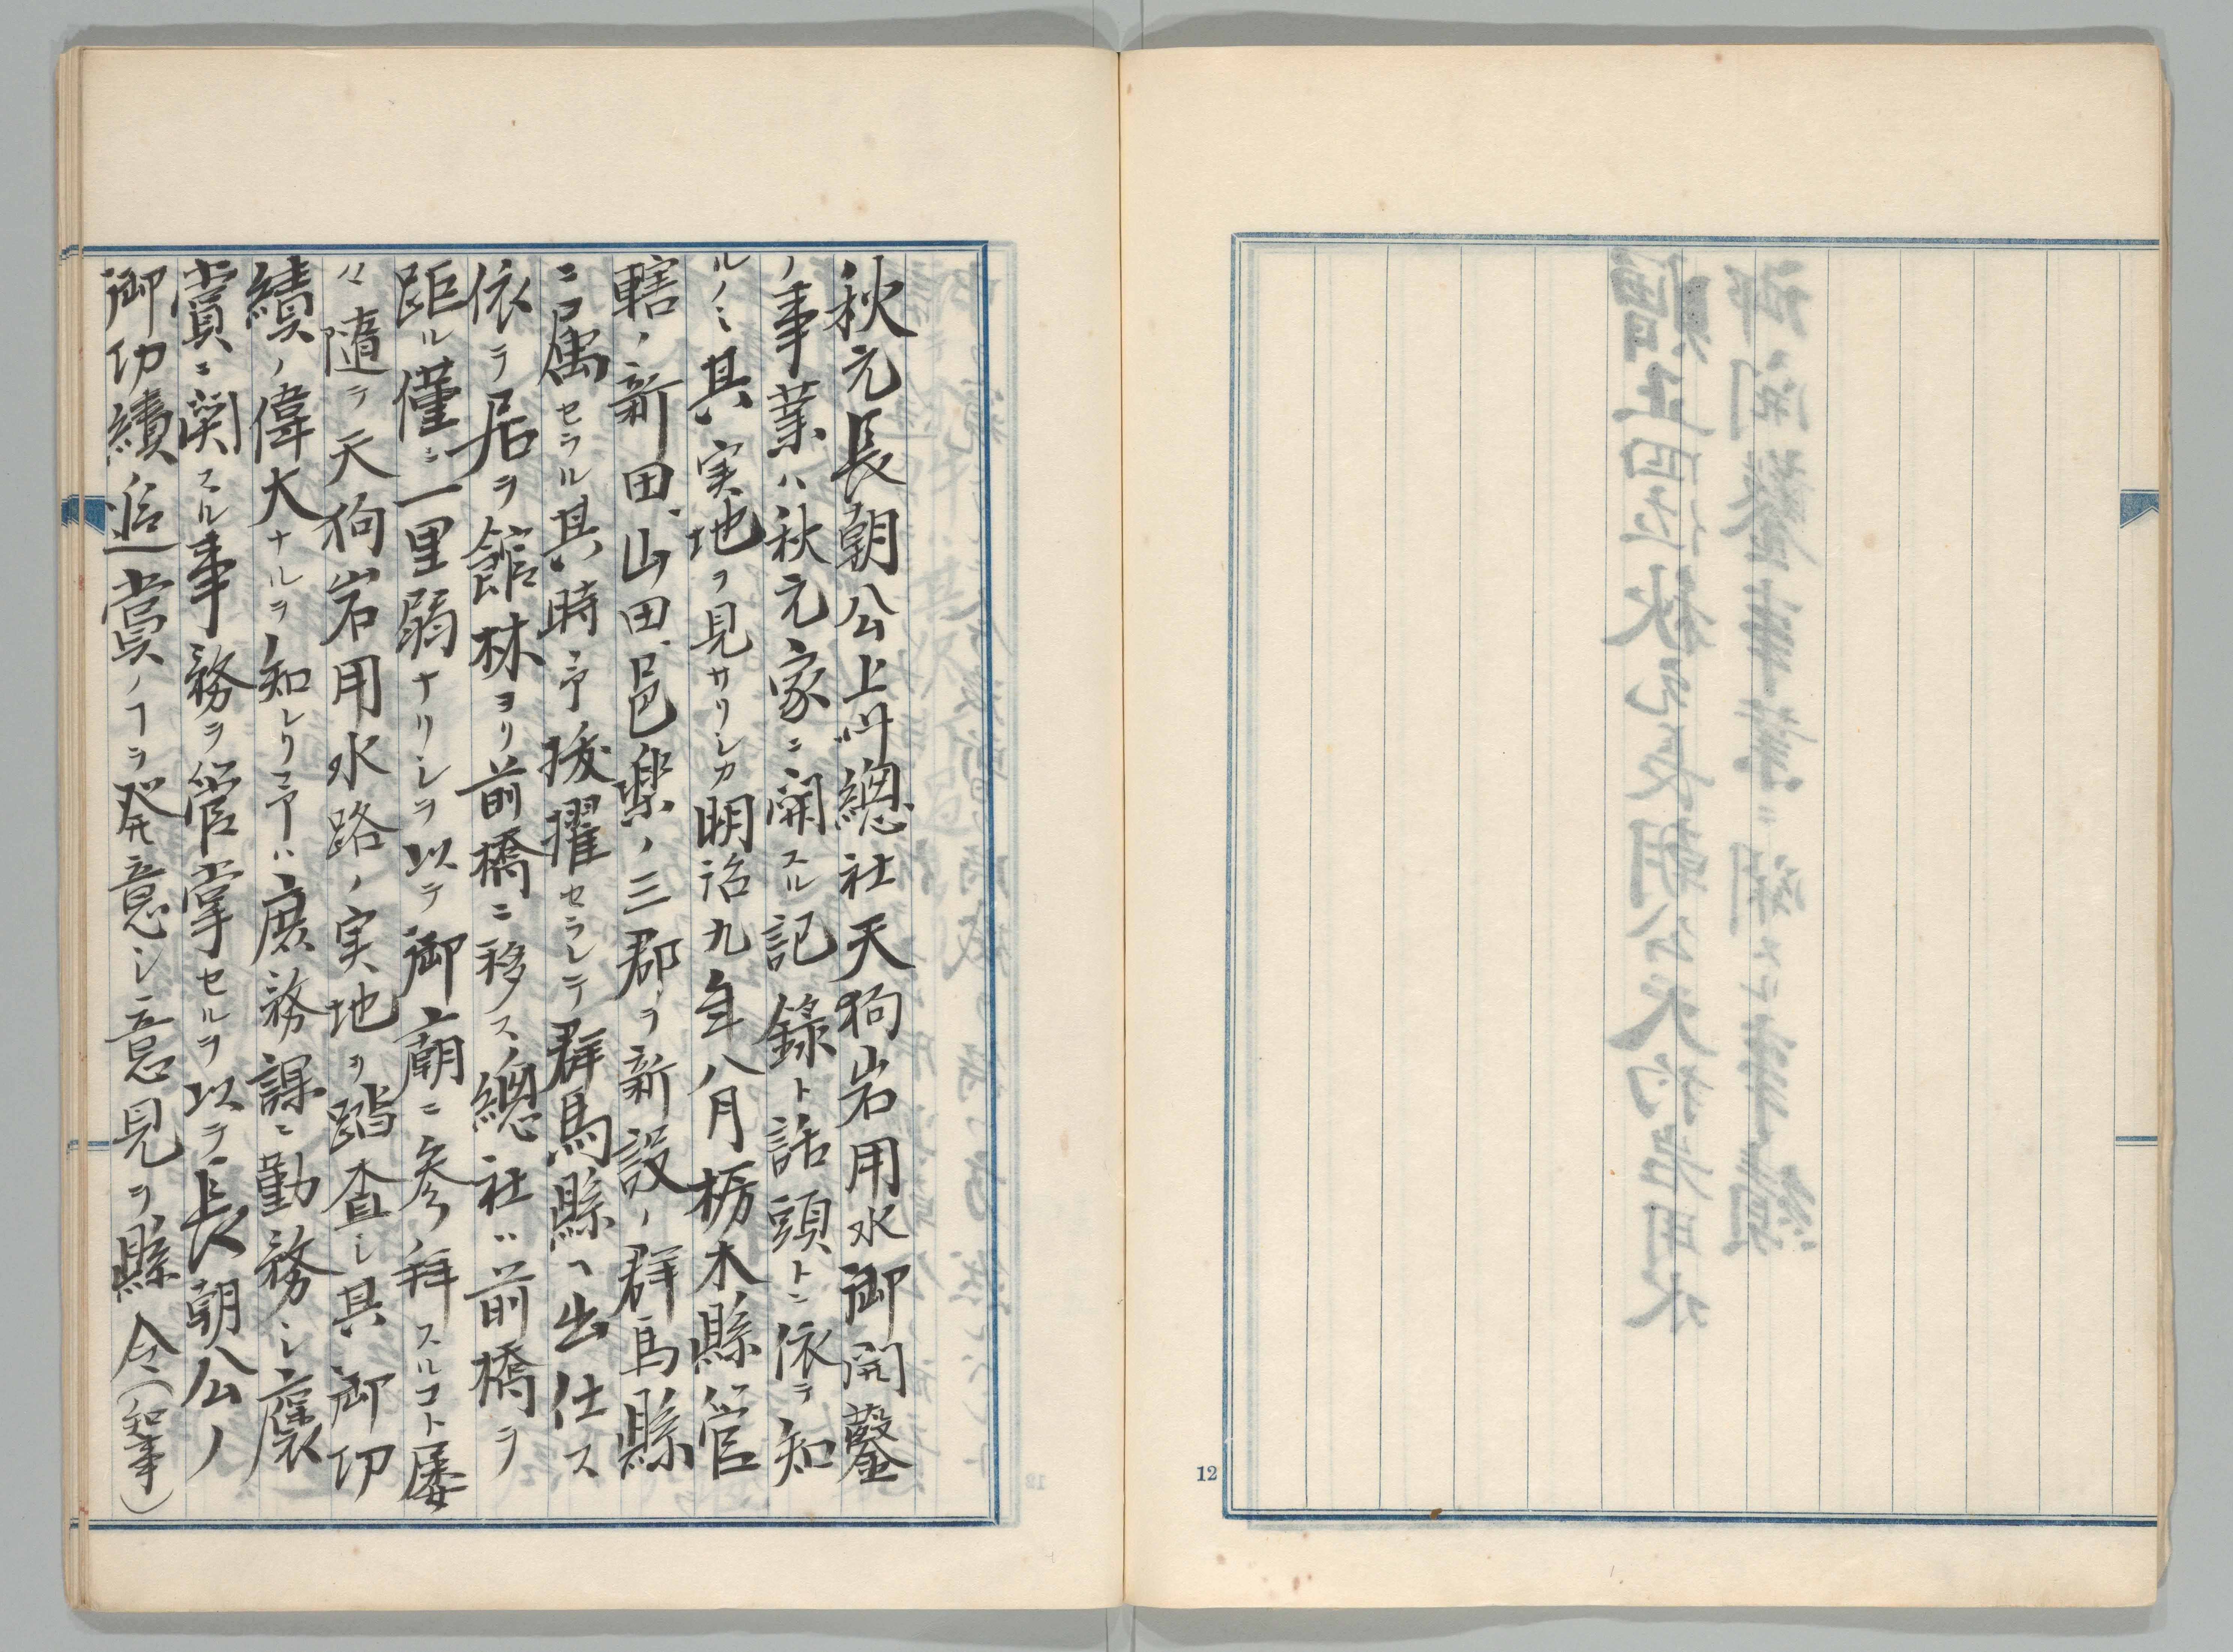 秋元長朝公上州總社天狗岩用水御開鑿
ノ事業ハ秋元家ニ関スル記錄ト話頭トニ依テ知
ルノミ其実地ヲ見サリシカ明治九年八月栃木縣管
轄ノ新田、山田、邑樂ノ三郡ヲ新設ノ群馬縣
ニ属セラル其時予抜擢セラレテ群馬縣ヘ出仕ス
依テ居ヲ館林ヨリ前橋ニ移ス總社ハ前橋ヲ
距ル僅ニ一里弱ナリシヲ以テ御廟ニ参拜スルコト屡
々随テ天狗岩用水路ノ実地ヲ踏査シ其御功
績ノ偉大ナルヲ知レリ予ハ庶務課ニ勤務シ褒
賞ニ関スル事務ヲ管掌セルヲ以テ長朝公ノ
御功績追賞ノヿヲ発意シ意見ヲ縣令(知事)
12